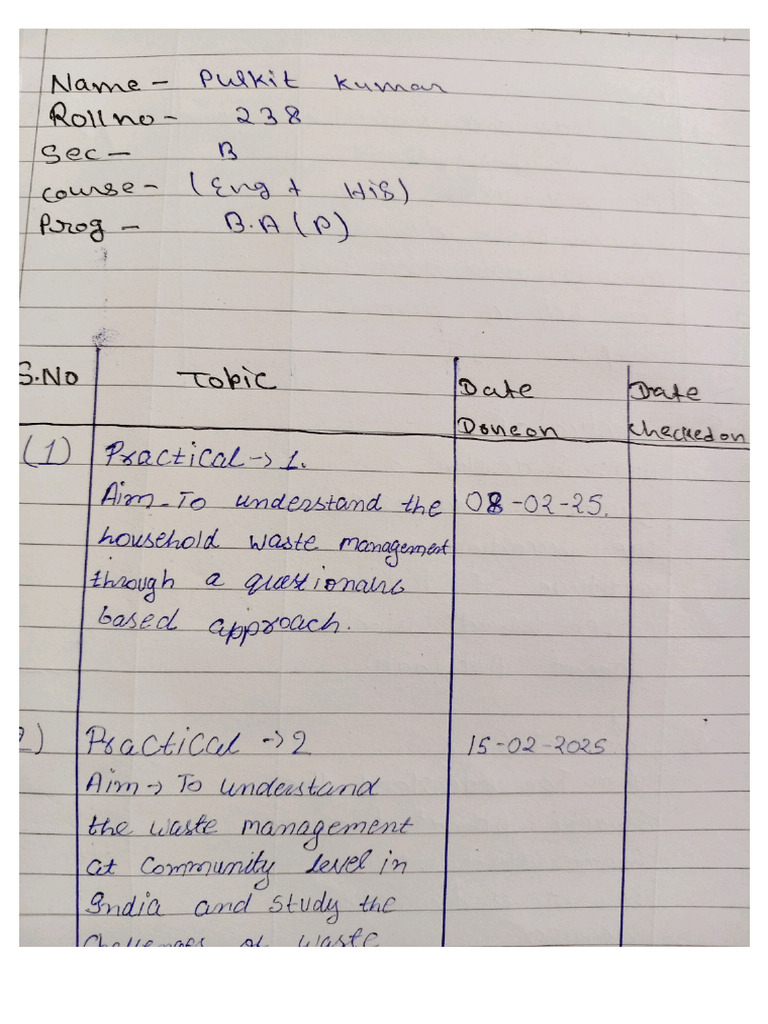 Name - Pulkit Kumar
Roll no - 238
Sec - B
course - (Eng + His)
Prog - B.A (P)
S.No Topic Date Done on Date checked on
(1) Practical -> 1.
Aim - To understand the 08-02-25.
household waste management
through a
based approach.
2) Practical -> 2 15-02-2025
Aim -> To understand
the waste management
at community level in
India and study the
challenges of waste